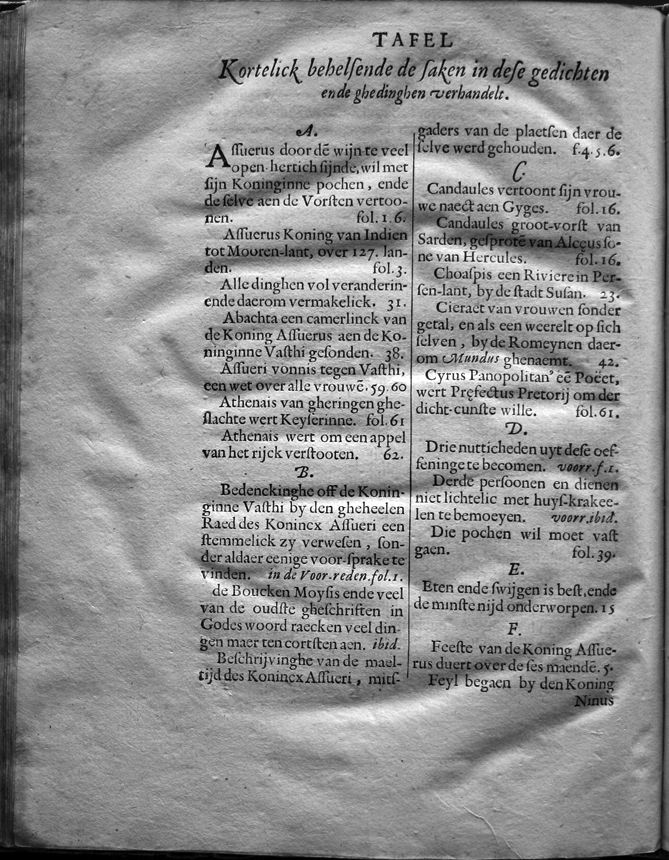 TAFEL
Kortelick behelſende de ſaken in deſe gedichten
ende ghedinghen verhandelt.
A.
Aſſuerus door dē wijn te veel
open-hertich ſijnde, wil met
ſijn Koninginne pochen, ende
de ſelve aen de Vorſten vertoo-
nen. fol. 1. 6.
Aſſuerus Koning van Indien
tot Mooren-lant, over 127. lan-
den. fol. 3.
Alle dinghen vol veranderin-
ende daerom vermakelick. 31.
Abachta een camerlinck van
de Koning Aſſuerus aen de Ko-
ninginne Vaſthi geſonden. 38.
Aſſueri vonnis tegen Vaſthi,
een wet over alle vrouwē. 59. 60
Athenais van gheringen ghe-
ſlachte wert Keyſerinne. fol. 61
Athenais wert om een appel
van het rijck verſtooten. 62.
B.
Bedenckinghe off de Konin-
ginne Vaſthi by den gheheelen
Raed des Konincx Aſſueri een
ſtemmelick zy verweſen, ſon-
der aldaer eenige voor-ſprake te
vinden. in de Voor-reden. fol. 1.
de Boucken Moyſis ende veel
van de oudſte gheſchriften in
Godes woord raecken veel din-
gen maer ten cortſten aen. ibid.
Beſchrijvinghe van de mael-
tijd des Konincx Aſſueri, mitſ-
gaders van de plaetſen daer de
ſelve werd gehouden. f. 4. 5. 6.
C
Candaules vertoont ſijn vrou-
we naeċt aen Gyges. fol. 16.
Candaules groot-vorſt van
Sarden, geſprotē van Alcęus ſo-
ne van Hercules. fol. 16.
Choaſpis een Riviere in Per-
ſen-lant, by de ſtadt Suſan. 23.
Cieraet van vrouwen ſonder
getal, en als een weerelt op ſich
ſelven, by de Romeynen daer-
om Mundus ghenaemt. 42.
Cyrus Panopolitan' eē Poëet,
wert Pręfectus Pretorij om der
dicht-cunſte wille. fol. 61.
D.
Drie nutticheden uyt deſe oef-
feninge te becomen. voorr. f. 1.
Derde perſoonen en dienen
niet lichtelic met huyſ-krakee-
len te bemoeyen. voorr. ibid.
Die pochen wil moet vaſt
gaen. fol. 39.
E.
Eten ende ſwijgen is beſt, ende
de minſte nijd onderworpen. 15
F.
Feeſte van de Koning Aſſue-
rus duert over de ſes maendē. 5.
Feyl begaen by den Koning
Ninus